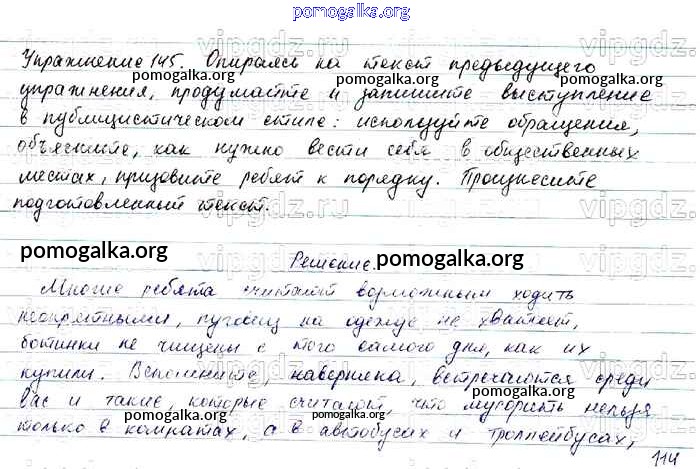 pomogalka.org
Упражнение 145. Опираясь на текст предыдущего
pomogalka.org pomogalka.org pomogalka.org
упражнения, продумайте и запишите выступление
в публицистическом стиле: используйте обращения,
pomogalka.org pomogalka.org
объясните, как нужно вести себя в общественных
местах, призовите ребят к порядку. Произнесите
pomogalka.org pomogalka.org pomogalka.org
подготовленный текст.
vipgdz.ru
pomogalka.org Решение. pomogalka.org
Многие ребята считают возможным ходить
неопрятными, пуговиц на одежде не хватает,
pomogalka.org pomogalka.org
ботинки не чищены с того самого дня, как их
купили. Вспомните, наверняка, встречаются среди
pomogalka.org pomogalka.org
вас и такие, которые считают, что мусорить нельзя
pomogalka.org pomogalka.org
только в комнатах, а в автобусах и троллейбусах,
pomogalka.org pomogalka.org
114